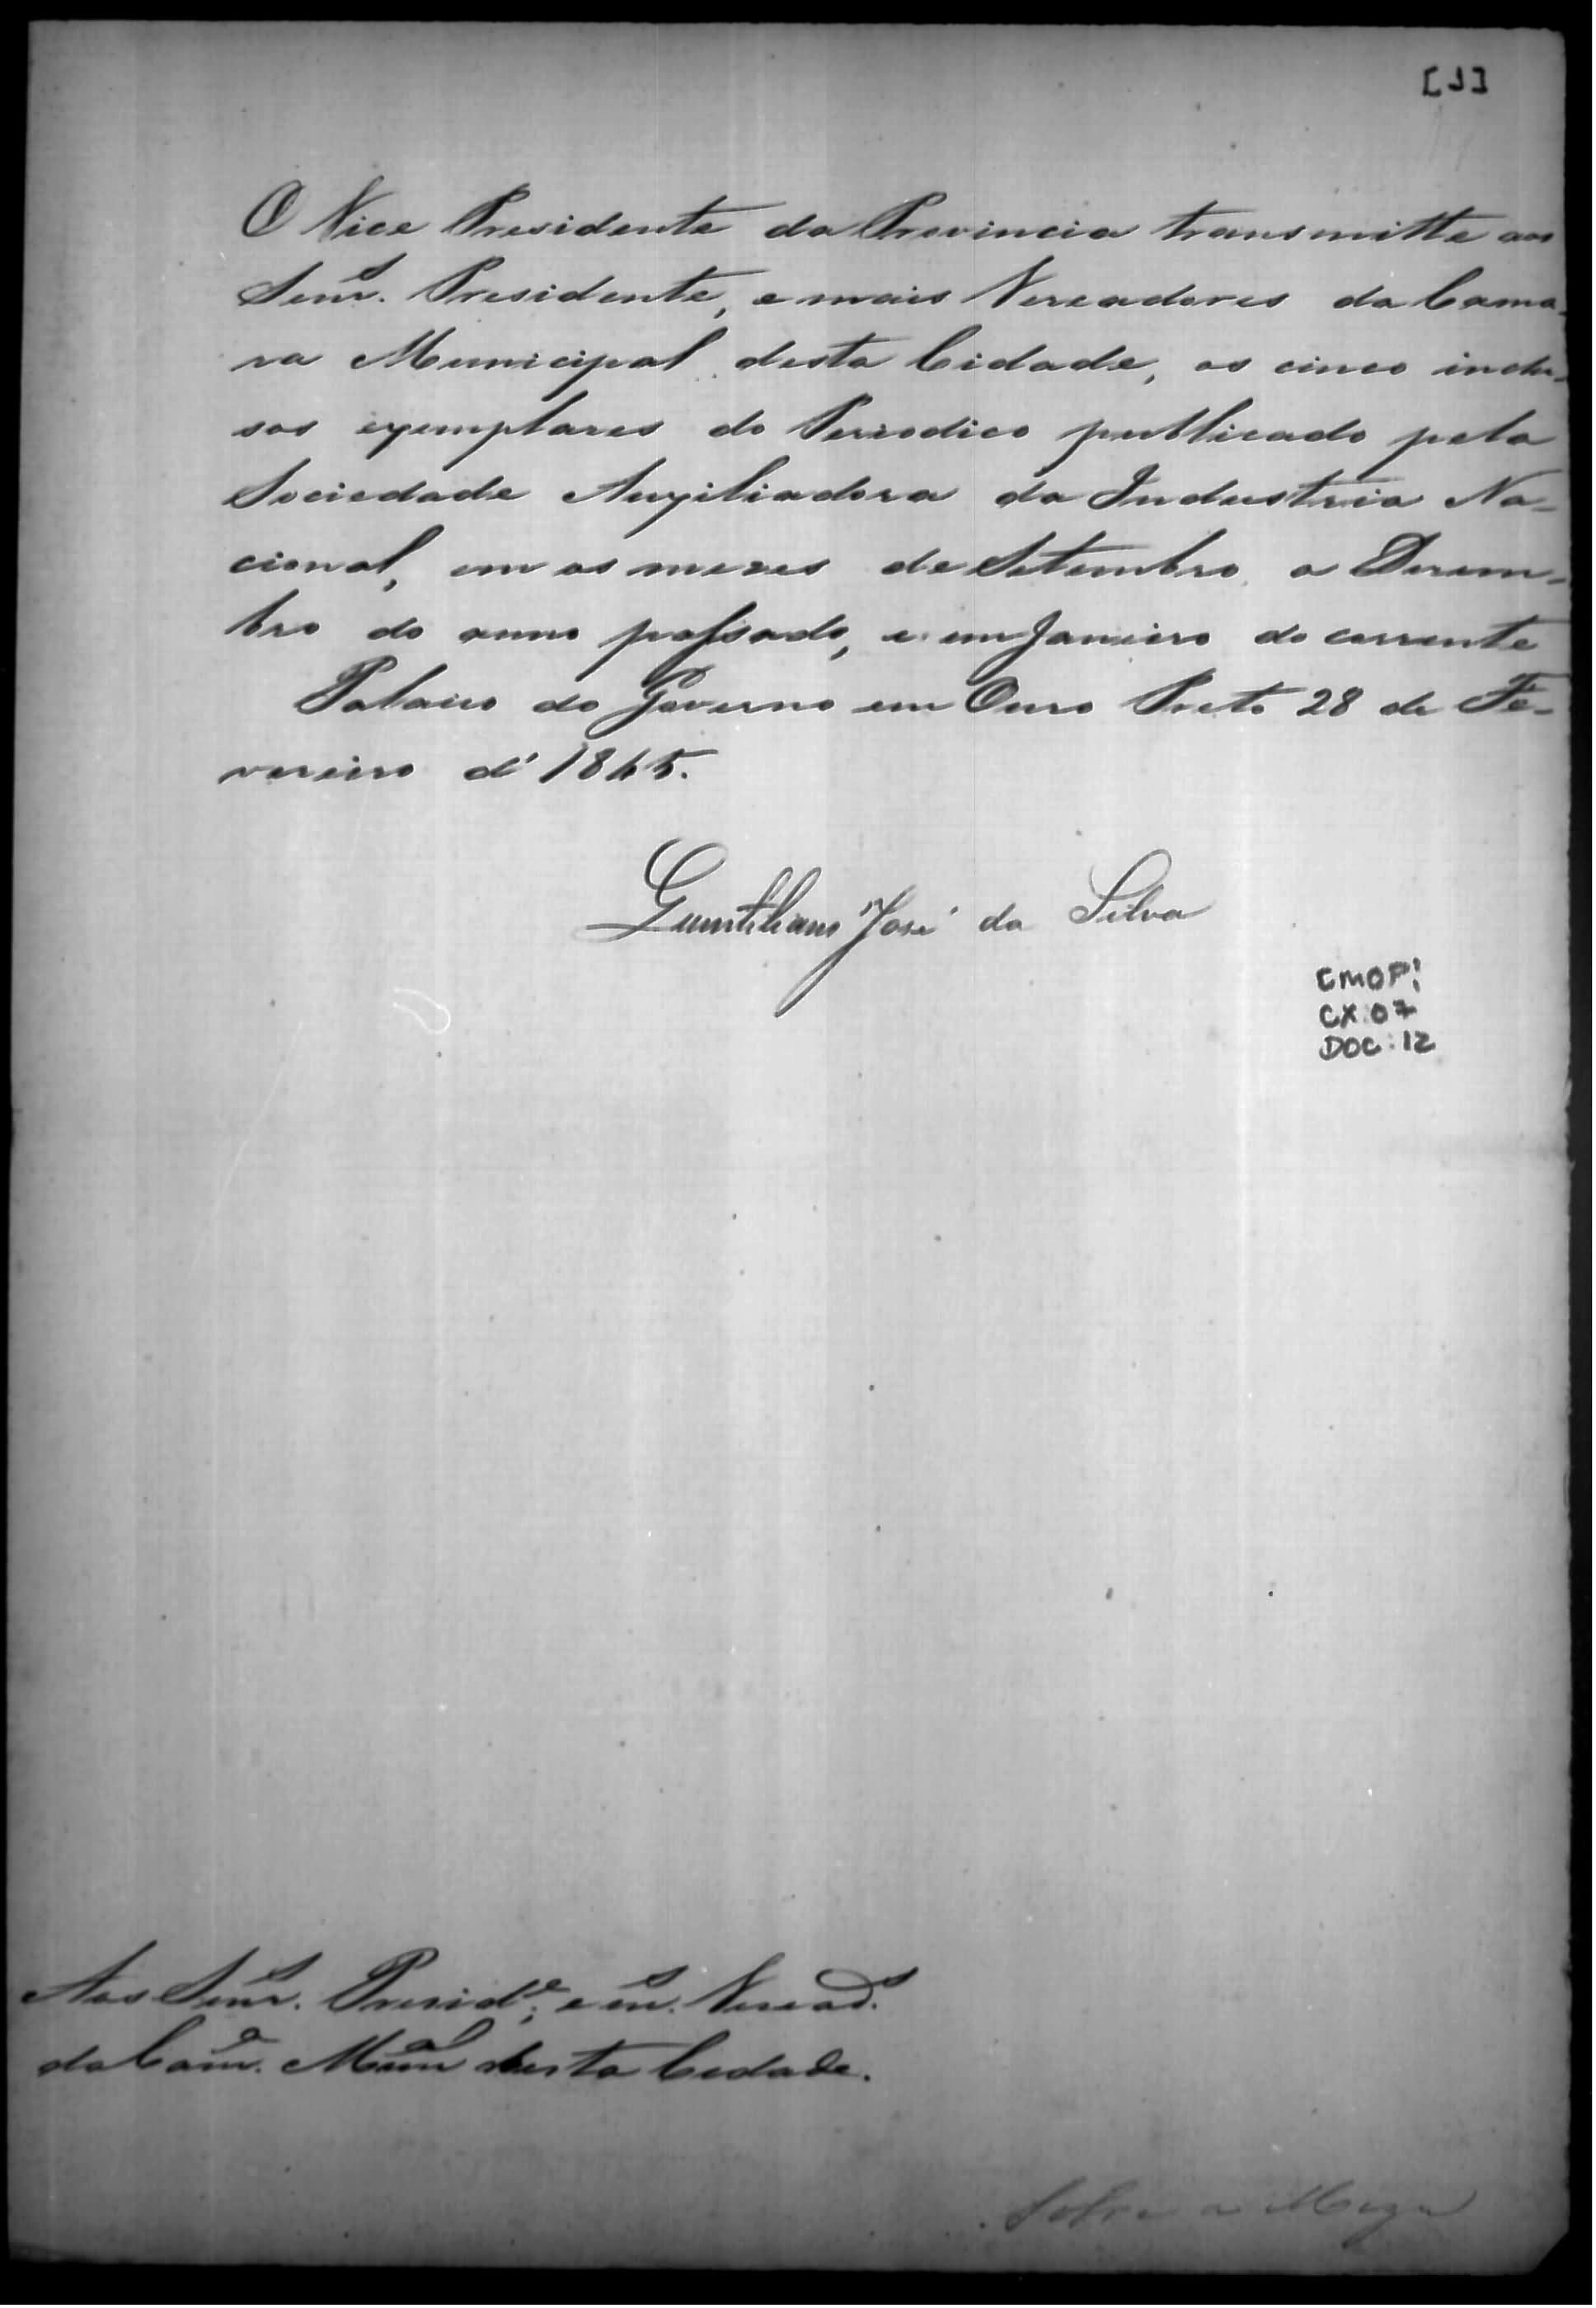 [1]
O Vice Presidente da Provincia transmitte aos
Senrs. Presidente, e mais Vereadores da Cama-
ra Municipal desta Cidade, os cinco inclu-
sos exemplares do Periodico publicado pela
Sociedade Auxiliadora da Industria Na-
cional, em os mezes de Setembro a Dezem-
bro do anno passado, e em Janeiro do corrente
Palacio do Governo em Ouro Preto 28 de Fe-
vereiro d' 1845.
Quintiliano José da Silva
CMOP:
CX: 07
DOC: 12
Aos Senrs. Presid.e, e m.s Veread.s
da Camr.a Mam.al desta Cidade.
Sobre a Meza